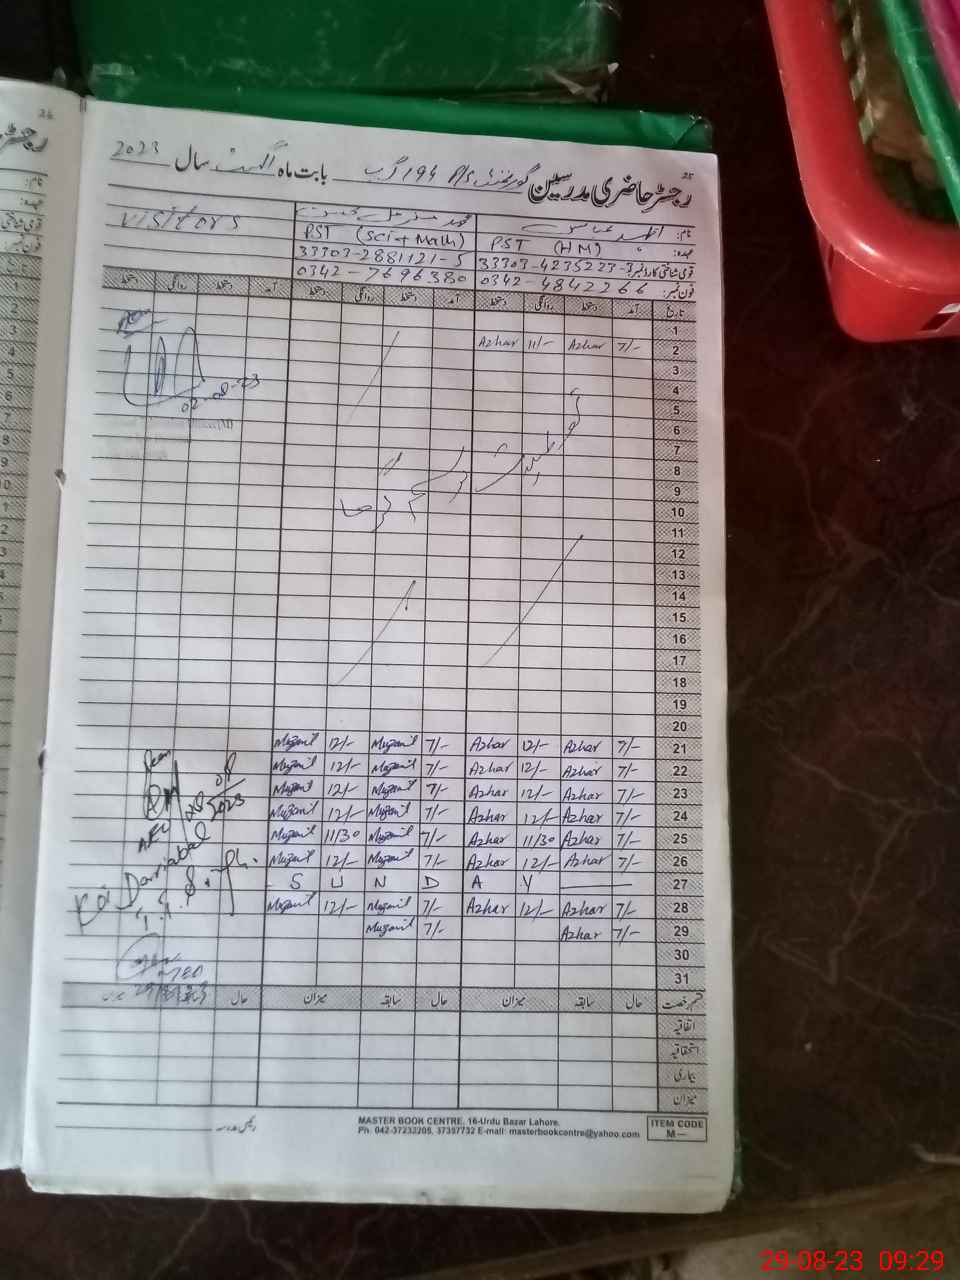 رجسٹر حاضری مدرسین گورنمنٹ P/S 194 ر ب بابت ماہ اگست سال 2023
25
نام:
محمد
visitors
عہدہ: PST (HM)
PST (Sci + Math)
قومی شناختی کارڈ نمبر: 33303-4235223-3
33303-2881121-5
فون نمبر: 0342-4842266
0342-7696380
تاریخ آمد دستخط روانگی دستخط آمد دستخط روانگی دستخط آمد دستخط روانگی دستخط
1
2 7/- Azhar 11/- Azhar
02-08-23
3
4
5
6
7
8
9
10
11
12
13
14
15
16
17
18
19
20
21 7/- Azhar 12/- Azhar 7/- Muzamil 12/- Muzamil
22 7/- Azhar 12/- Azhar 7/- Muzamil 12/- Muzamil
23 7/- Azhar 12/- Azhar 7/- Muzamil 12/- Muzamil
24 7/- Azhar 12/- Azhar 7/- Muzamil 12/- Muzamil
25 7/- Azhar 11/30 Azhar 7/- Muzamil 11/30 Muzamil
26 7/- Azhar 12/- Azhar 7/- Muzamil 12/- Muzamil
27 S U N D A Y
28 7/- Azhar 12/- Azhar 7/- Muzamil 12/- Muzamil
29 7/- Azhar 7/- Muzamil
30
31
قسم رخصت حال سابقہ میزان حال سابقہ میزان حال سابقہ میزان
اتفاقیہ
استحقاقیہ
بیماری
میزان
MASTER BOOK CENTRE, 16-Urdu Bazar Lahore.
Ph. 042-37232205, 37397732 E-mail: masterbookcentre@yahoo.com
ITEM CODE
M—
26
29-08-23 09:29